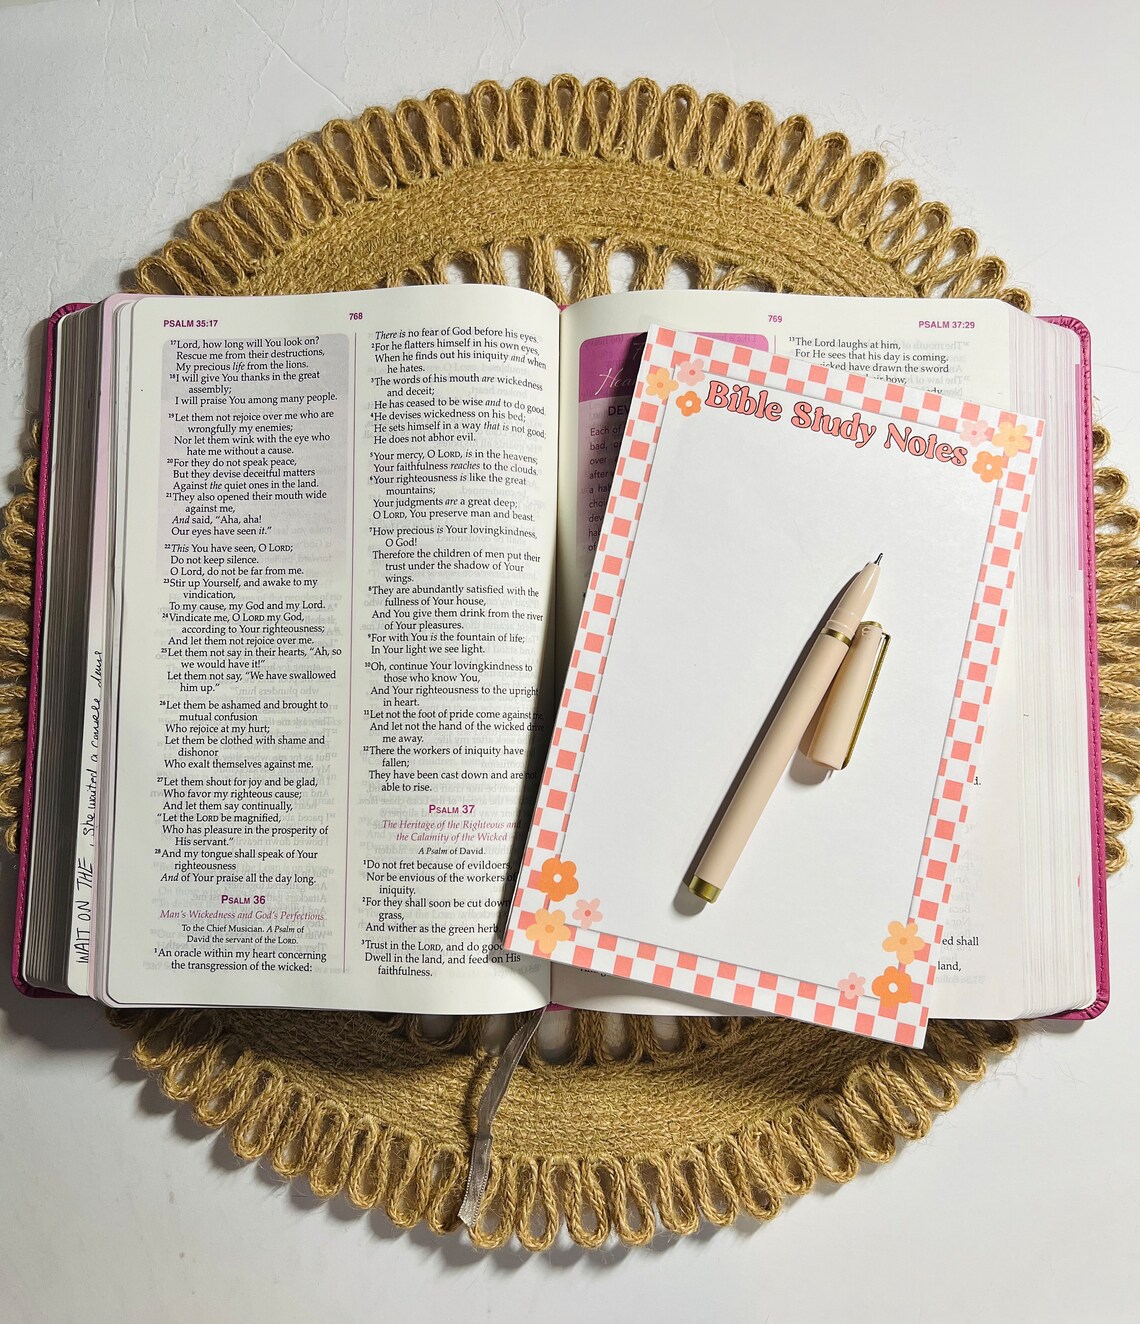 PSALM 35:17
768
¹⁷Lord, how long will You look on?
Rescue me from their destructions,
My precious life from the lions.
¹⁸I will give You thanks in the great
assembly;
I will praise You among many people.
¹⁹Let them not rejoice over me who are
wrongfully my enemies;
Nor let them wink with the eye who
hate me without a cause.
²⁰For they do not speak peace,
But they devise deceitful matters
Against the quiet ones in the land.
²¹They also opened their mouth wide
against me,
And said, “Aha, aha!
Our eyes have seen it.”
²²This You have seen, O LORD;
Do not keep silence.
O Lord, do not be far from me.
²³Stir up Yourself, and awake to my
vindication,
To my cause, my God and my Lord.
²⁴Vindicate me, O LORD my God,
according to Your righteousness;
And let them not rejoice over me.
²⁵Let them not say in their hearts, “Ah, so
we would have it!”
Let them not say, “We have swallowed
him up.”
²⁶Let them be ashamed and brought to
mutual confusion
Who rejoice at my hurt;
Let them be clothed with shame and
dishonor
Who exalt themselves against me.
²⁷Let them shout for joy and be glad,
Who favor my righteous cause;
And let them say continually,
“Let the LORD be magnified,
Who has pleasure in the prosperity of
His servant.”
²⁸And my tongue shall speak of Your
righteousness
And of Your praise all the day long.
PSALM 36
Man's Wickedness and God's Perfections
To the Chief Musician. A Psalm of
David the servant of the LORD.
¹An oracle within my heart concerning
the transgression of the wicked:
There is no fear of God before his eyes.
²For he flatters himself in his own eyes,
When he finds out his iniquity and when
he hates.
³The words of his mouth are wickedness
and deceit;
He has ceased to be wise and to do good.
⁴He devises wickedness on his bed;
He sets himself in a way that is not good;
He does not abhor evil.
⁵Your mercy, O LORD, is in the heavens;
Your faithfulness reaches to the clouds.
⁶Your righteousness is like the great
mountains;
Your judgments are a great deep;
O LORD, You preserve man and beast.
⁷How precious is Your lovingkindness,
O God!
Therefore the children of men put their
trust under the shadow of Your
wings.
⁸They are abundantly satisfied with the
fullness of Your house,
And You give them drink from the river
of Your pleasures.
⁹For with You is the fountain of life;
In Your light we see light.
¹⁰Oh, continue Your lovingkindness to
those who know You,
And Your righteousness to the upright
in heart.
¹¹Let not the foot of pride come against me,
And let not the hand of the wicked drive
me away.
¹²There the workers of iniquity have
fallen;
They have been cast down and are not
able to rise.
PSALM 37
The Heritage of the Righteous and
the Calamity of the Wicked
A Psalm of David.
¹Do not fret because of evildoers,
Nor be envious of the workers of
iniquity.
²For they shall soon be cut down
grass,
And wither as the green herb.
³Trust in the LORD, and do good
Dwell in the land, and feed on His
faithfulness.
WAIT ON THE
she waited a
769
PSALM 37:29
Each of
bad,
over
after
¹³The Lord laughs at him,
For He sees that his day is coming.
have drawn the sword
bow,
shall
land,
Bible Study Notes